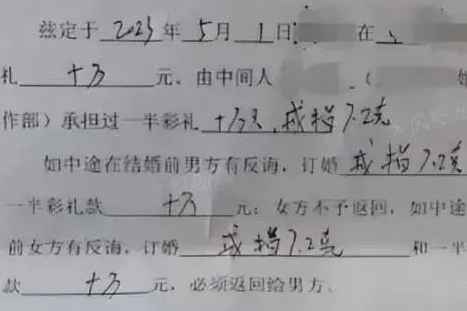 兹定于 2023 年 5 月 1 日 在
礼 十万 元。由中间人 (
作部）承担过一半彩礼 十万元，戒指7.2克
如中途在结婚前男方有反海，订婚 戒指7.2克
一半彩礼款 十万 元；女方不予返回，如中途
前女方有反海，订婚 戒指7.2克 和一半
款 十万 元，必须返回给男方。